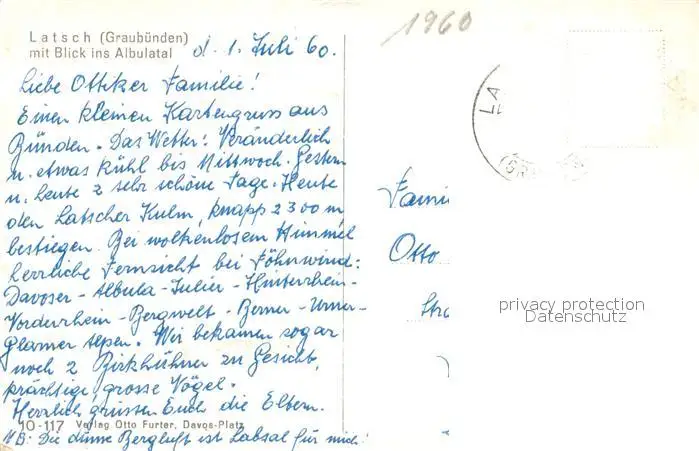 Latsch (Graubünden)
mit Blick ins Albulatal
d. 1. Juli 60.
1960
Liebe Ottiker Familie!
Einen kleinen Kartengruss aus
Bünden. Das Wetter: Veränderlich
u. etwas kühl bis Mittwoch. Gestern
u. heute 2 sehr schöne Tage. Heute
den Latscher Kulm, knapp 2300 m,
bestiegen. Bei wolkenlosem Himmel
herrliche Fernsicht bei Föhnwind:
Davoser - Albula - Julier - Hinterrhein-
Vorderrhein - Bergwelt - Berner - Urner-
Glarner Alpen. Wir bekamen sogar
noch 2 Birkhühner zu Gesicht,
prächtige, grosse Vögel.
Herzlich grüssen Euch die Eltern.
10-117 Verlag Otto Furter, Davos-Platz
NB: Die dünne Bergluft ist Labsal für mich!
LA
(GR
Famil
Otto
Stra
privacy protection
Datenschutz